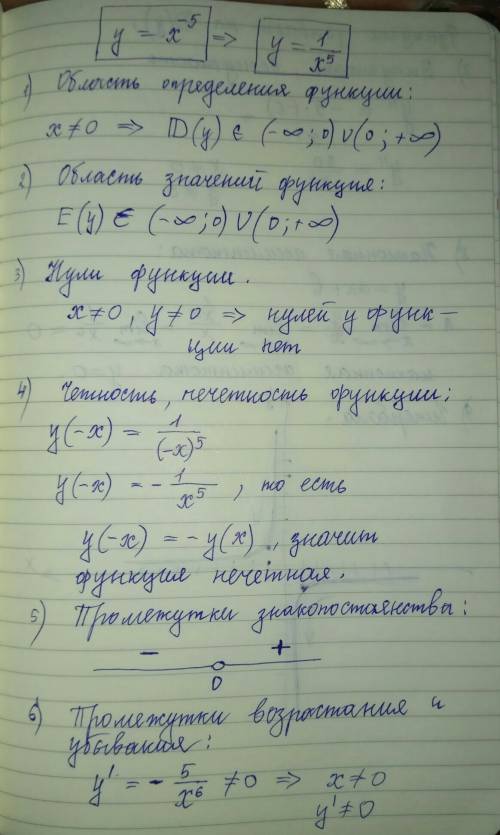 y = x⁻⁵ => y = 1/x⁵
1) Область определения функции:
x≠0 => D(y) ∈ (-∞; 0) ∪ (0; +∞)
2) Область значений функция:
E(y) ∈ (-∞; 0) ∪ (0; +∞)
3) Нули функции.
x≠0, y≠0 => нулей у функ-
ции нет
4) Четность, нечетность функции:
y(-x) = 1/(-x)⁵
y(-x) = - 1/x⁵, то есть
y(-x) = -y(x), значит
функция нечетная.
5) Промежутки знакопостоянства:
- +
0
6) Промежутки возрастания и
убывания:
y' = - 5/x⁶ ≠0 => x≠0
y'≠0